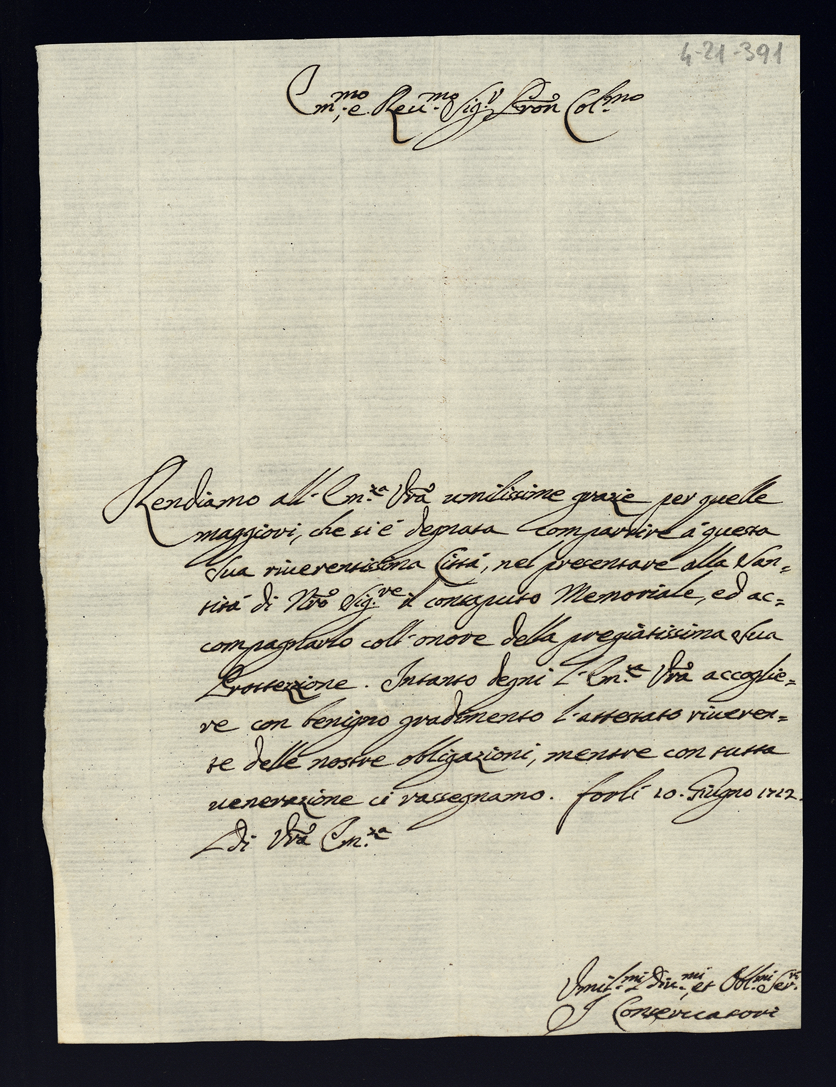 4-21-391
Em.mo, e Reu.mo Sig.r Pron Col.mo
Rendiamo all' Em.za Vrã umilissime grazie per quelle
maggiori, che si é degnata compartire á questa
Sua riuerentissima Cittá, nel presentare alla San=
titá di Nrõ Sig.re il consaputo Memoriale, ed ac=
compagnarlo coll' onore della pregiatissima Sua
Protezzione. Intanto degni l' Em.za Vrã accoglie=
re con benigno gradimento l' attestato riueren=
te delle nostre obligazioni, mentre con tutta
uenerazione ci rassegnamo. Forlí 10. Giugno 1712.
Di Vrã Em.za
Vmil.mi Diu.mi, et Obl.mi Ser.ri
I Conseruatori